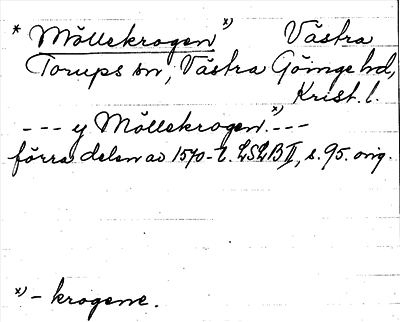 * Møllekrogen x) Västra
Torups sn, Västra Göinge hd,
Krist. l.
- - - y Møllekrogen. x) - - -
förra delen av 1570-t. LSLB II, s. 95. orig.
x) - krogene.